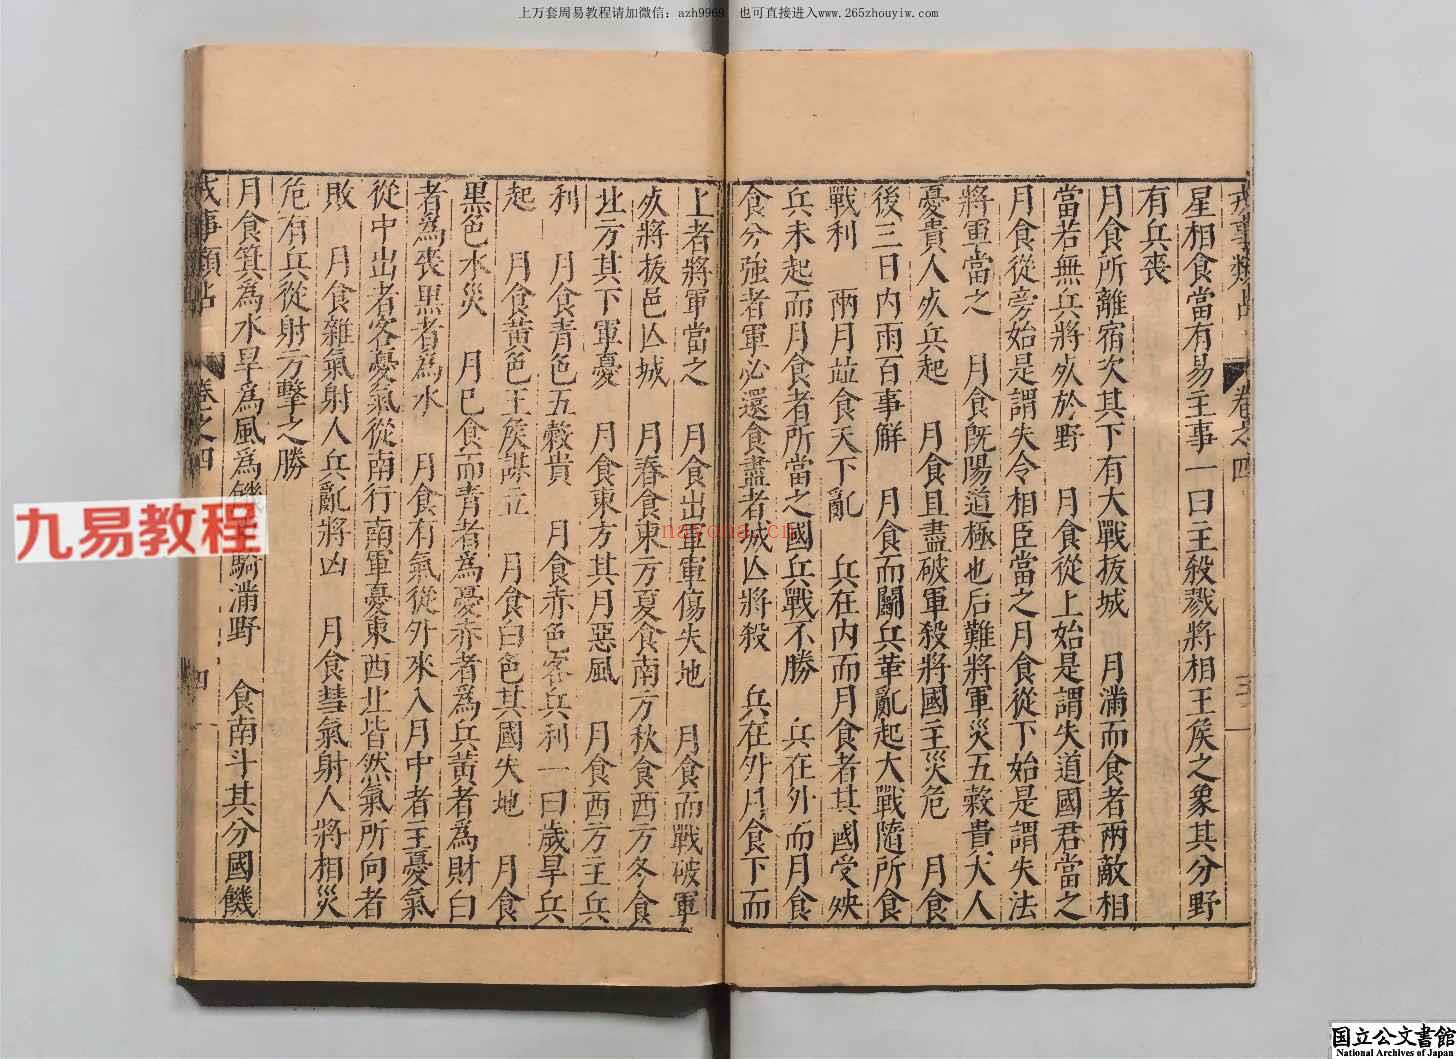 上万套周易教程请加微信：azh9969　也可直接进入www.265zhouyiw.com
戎事類占　卷之四　三
星相食當有易主事一曰主殺戮將相王矦之象其分野
有兵喪
月食所離宿次其下有大戰拔城　月滿而食者兩敵相
當若無兵將㱙於野　月食從上始是謂失道國君當之
月食從旁始是謂失令相臣當之月食從下始是謂失法
將軍當之　月食旣陽道極也后難將軍災五穀貴大人
憂貴人㱙兵起　月食且盡破軍殺將國主災危　月食
後三日內雨百事解　月食而鬬兵革亂起大戰隨所食
戰利　兩月竝食天下亂　兵在內而月食者其國受殃
兵未起而月食者所當之國兵戰不勝　兵在外而月食
食分強者軍必還食盡者城亾將殺　兵在外月食下而
上者將軍當之　月食出軍軍傷失地　月食而戰破軍
㱙將拔邑亾城　月春食東方夏食南方秋食西方冬食
北方其下軍憂　月食東方其月惡風　月食西方主兵
利　月食青色五穀貴　月食赤色客兵利一曰歲旱兵
起　月食黃色王矦謀立　月食白色其國失地　月食
黑色水災　月已食而青者爲憂赤者爲兵黃者爲財白
者爲喪黑者爲水　月食有氣從外來入月中者主憂氣
從中出者客憂氣從南行南軍憂東西北皆然氣所向者
敗　月食雜氣射人兵亂將凶　月食彗氣射人將相災
危有兵從射方擊之勝
月食箕爲水旱爲風爲饑　騎滿野　食南斗其分國饑
戎事類占　卷之四　四
九易教程
nayona.cn
国立公文書館
National Archives of Japan